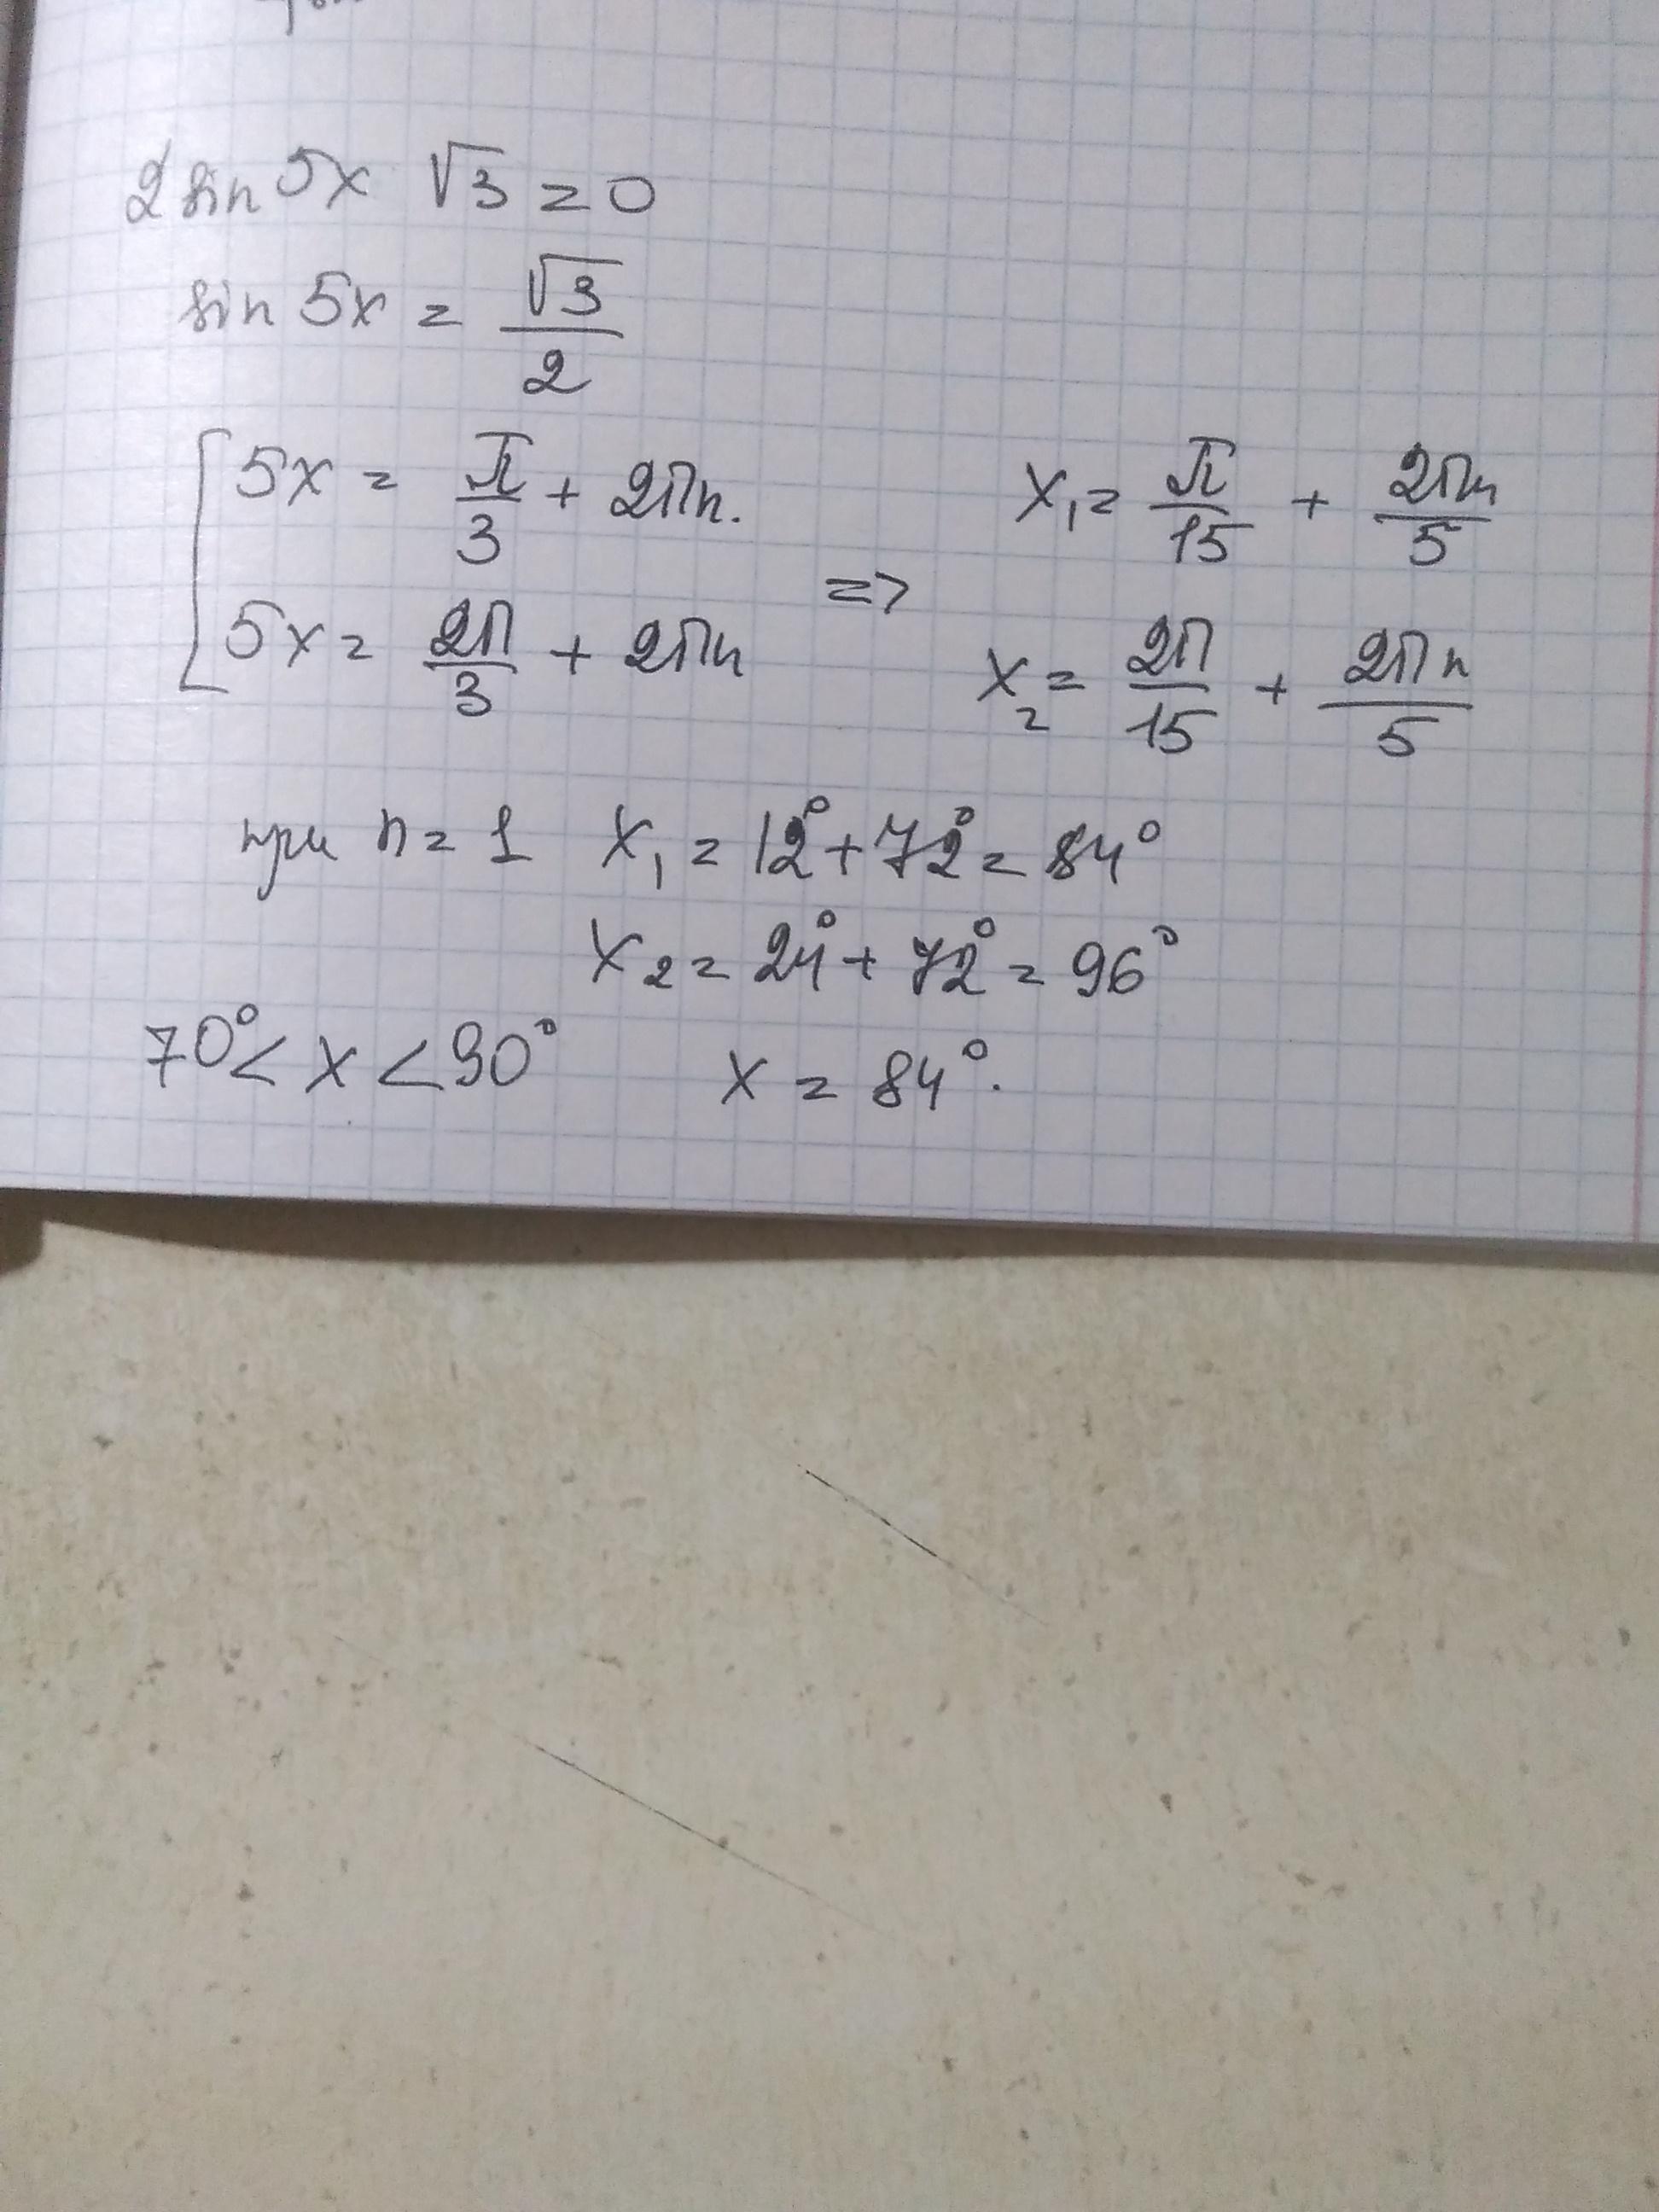 2 sin 5x √3 = 0
sin 5x = √3/2
5x = π/3 + 2πn. => x₁ = π/15 + 2πn/5
5x = 2π/3 + 2πn x₂ = 2π/15 + 2πn/5
при n = 1 x₁ = 12° + 72° = 84°
x₂ = 24° + 72° = 96°
70° < x < 90° x = 84°.